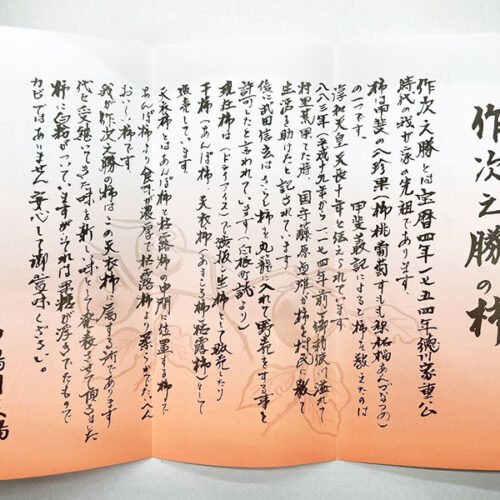 作次之勝の柿
作次之勝とは宝暦四年一七五四年徳川家重公
時代の我が家の先祖であります。
柿は甲斐の八珍果(柿桃葡萄すもも あんずなつめ)
の一つです。 甲斐叢記によると柿を教えたのは
淳和天皇天長十年と伝えられています
八八三年(平成十九年から一一七四年前)御勅使川溢れて
村里荒果てた時 国守藤原貞雄が柿を村民に教えて
生活を助けたと記されています
後に武田信玄はころ柿を丸籠に入れて野売をする事を
許可したと言われています(白根町誌より)
現在柿は(ドライアイス)で渋抜し生柿として販売したり
干柿(あんぽ柿、天衣柿(あまごろも柿)枯露柿)として
販売しています
天衣柿とはあんぽ柿と枯露柿の中間に位置する柿で
あんぽ柿より食味が濃厚で枯露柿より柔らかでたいへん
おいしい柿です
我が作次之勝の柿はこの天衣柿に属する訳であります
代々受継いできた味を新しい味として発表させて頂きました
柿に白粉がついていますがそれは果糖が浮きでたもので
カビではありません 安心して御賞味ください。